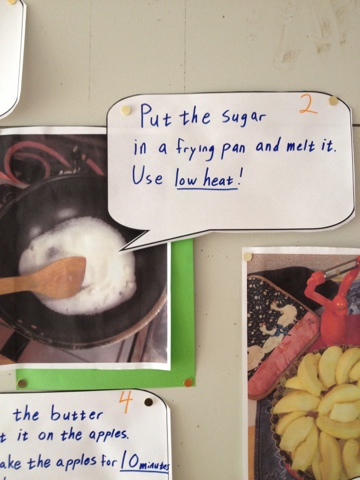 2
Put the sugar
in a frying pan and melt it.
Use low heat!
4
the butter
it on the apples.
the apples for 10 minutes